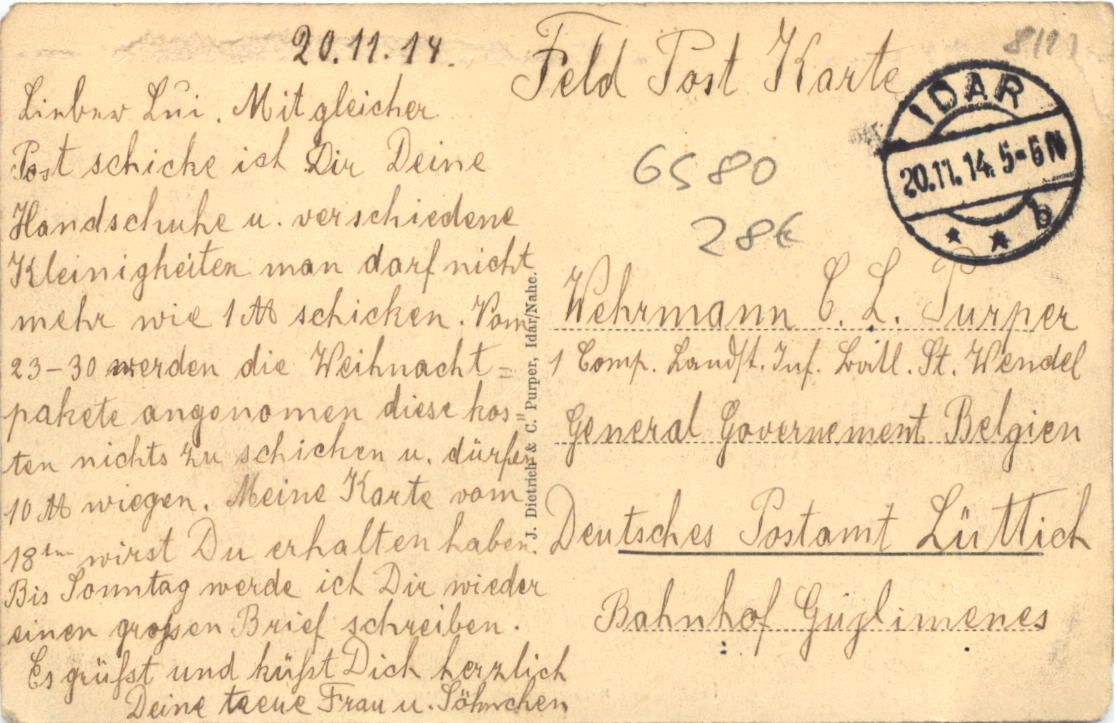 20.11.14.
Lieber Lui. Mit gleicher
Post schicke ich Dir Deine
Handschuhe u. verschiedene
Kleinigheiten man darf nicht
mehr wie 1 ℔ schicken. Vom
23-30 werden die Weihnacht=
pakete angenomen diese kos-
ten nichts zu schicken u. dürfen
10 ℔ wiegen. Meine Karte vom
18ten wirst Du erhalten haben.
Bis Sonntag werde ich Dir wieder
einen großen Brief schreiben.
Es grüßt und küßt Dich herzlich
Deine treue Frau u. Söhnchen
J. Dietrich & C. Purper, Idar/Nahe.
Feld Post Karte
IDAR
20.11.14. 5-6 N
* * b
6580
28€
Wehrmann C. L. Purper
1 Comp. Landst. Inf. Batl. St. Wendel
General Governement Belgien
Deutsches Postamt Lüttich
Bahnhof Guglimenes